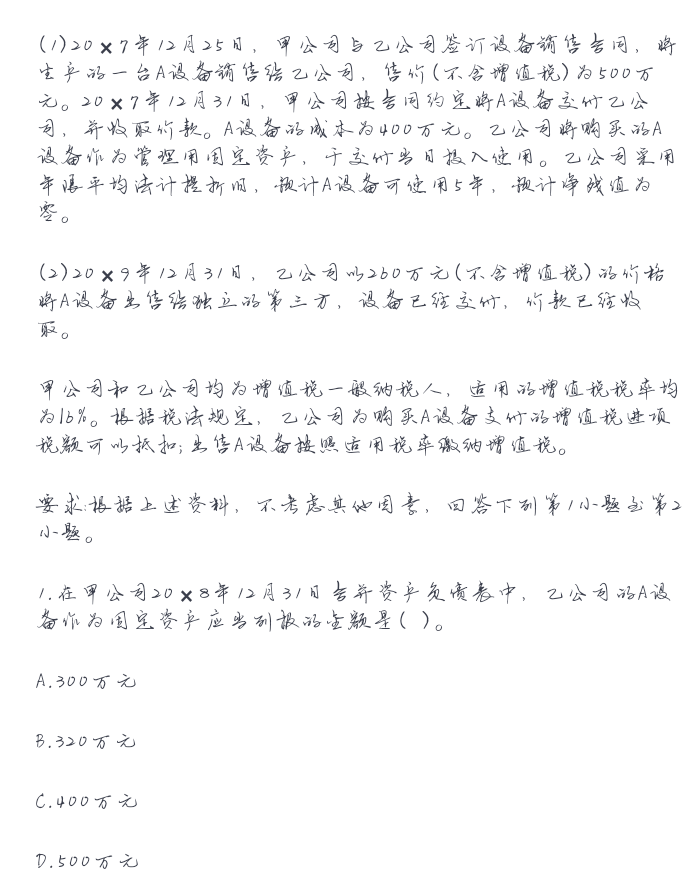 (1)20×7年12月25日，甲公司与乙公司签订设备销售合同，将
生产的一台A设备销售给乙公司，售价(不含增值税)为500万
元。20×7年12月31日，甲公司按合同约定将A设备交付乙公
司，并收取价款。A设备的成本为400万元。乙公司将购买的A
设备作为管理用固定资产，于交付当日投入使用。乙公司采用
年限平均法计提折旧，预计A设备可使用5年，预计净残值为
零。
(2)20×9年12月31日，乙公司以260万元(不含增值税)的价格
将A设备出售给独立的第三方，设备已经交付，价款已经收
取。
甲公司和乙公司均为增值税一般纳税人，适用的增值税税率均
为16%。根据税法规定，乙公司为购买A设备支付的增值税进项
税额可以抵扣;出售A设备按照适用税率缴纳增值税。
要求:根据上述资料，不考虑其他因素，回答下列第1小题至第2
小题。
1.在甲公司20×8年12月31日合并资产负债表中，乙公司的A设
备作为固定资产应当列报的金额是( )。
A.300万元
B.320万元
C.400万元
D.500万元